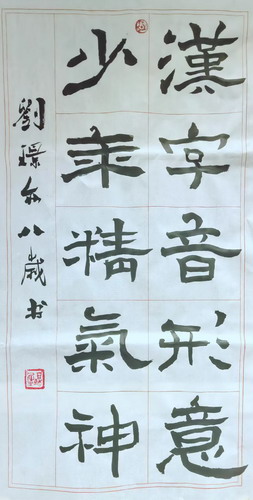 漢字音形意
少年精氣神
劉璟八歲书